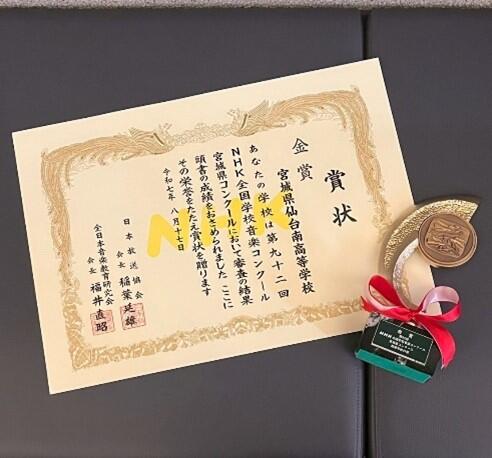 賞状
金賞
宮城県仙台南高等学校
あなたの学校は第九十二回
NHK全国学校音楽コンクール
宮城県コンクールにおいて審査の結果
頭書の成績をおさめられました ここに
その栄誉をたたえ賞状を贈ります
令和七年 八月十七日
日本放送協会
会長 稲葉延雄
全日本音楽教育研究会
会長 福井直昭
NHK